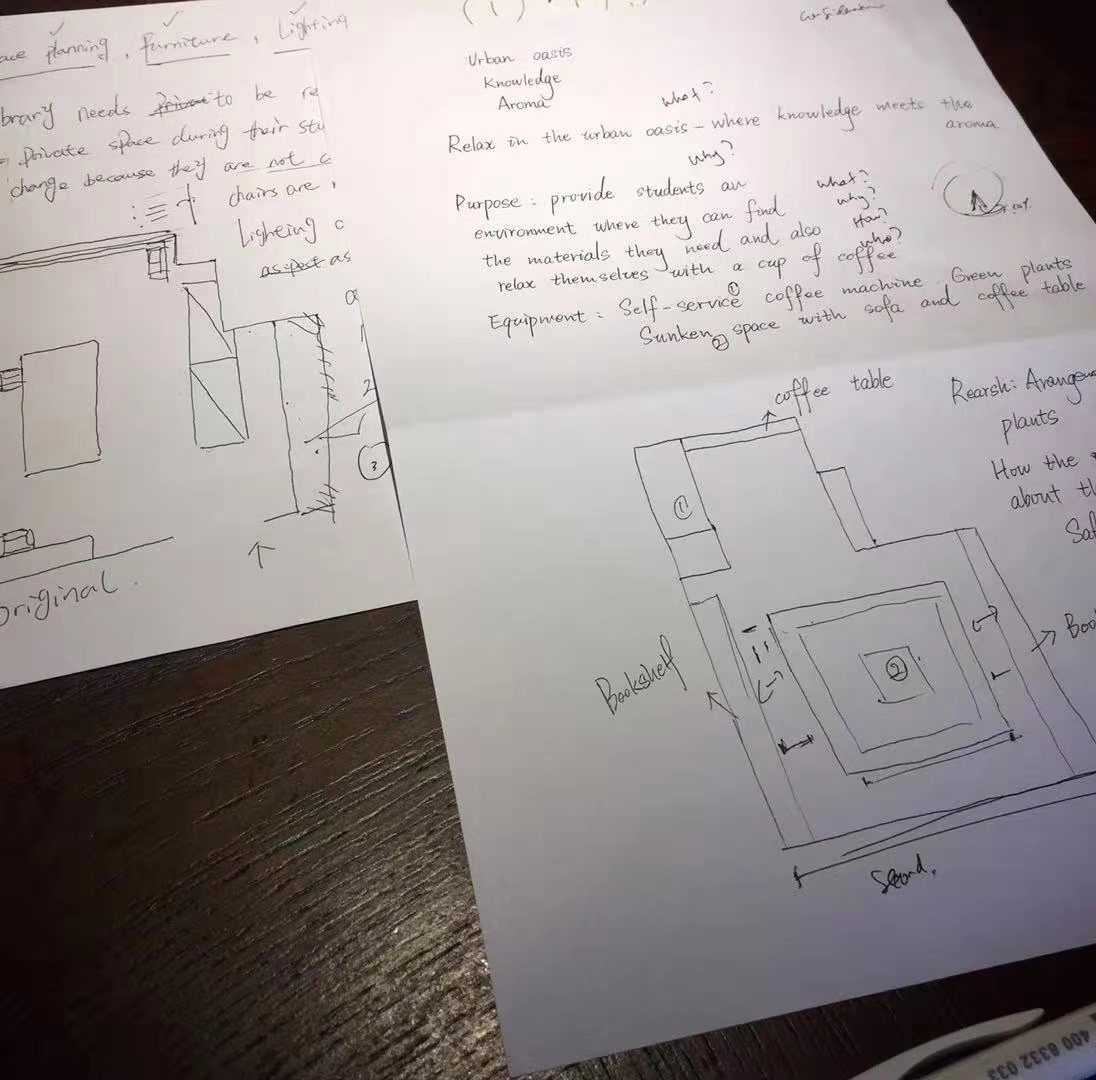 planning, furniture, Lighting
needs to be re
Private space during their stu
change because they are not c
chairs are
Lighteing c
aspect as
2
3
original.
(1)
Urban oasis
Knowledge
Aroma
what?
Relax in the urban oasis – where knowledge meets the
aroma
why?
Purpose: provide students an
environment where they can find
the materials they need and also
relax themselves with a cup of coffee
what?
why?
How?
who?
Equipment: Self-service ① coffee machine. Green plants
Sunken ② space with sofa and coffee table
coffee table
Rearsh: Arange
plants
How the
about th
①
②
Bookshelf
Boo
Second.
400 8332 033